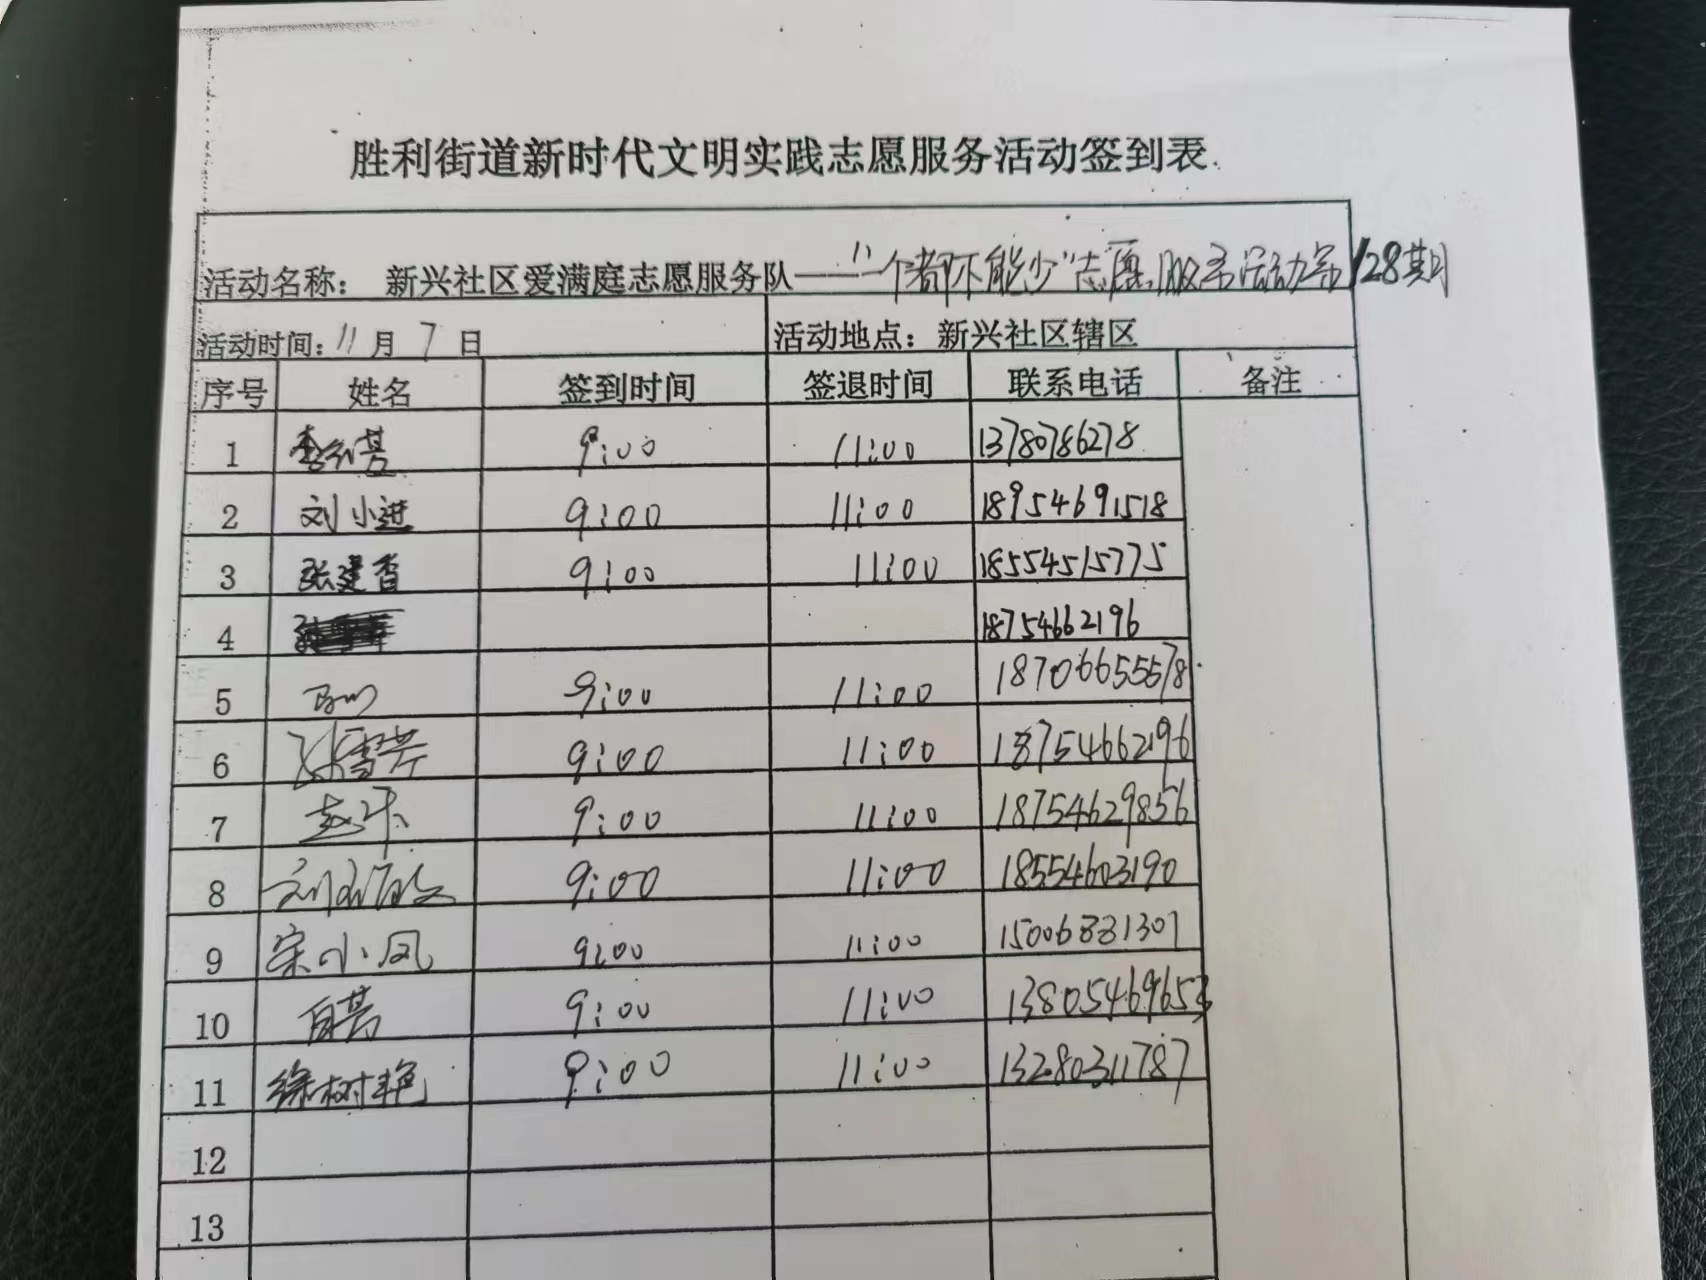 胜利街道新时代文明实践志愿服务活动签到表
活动名称： 新兴社区爱满庭志愿服务队——"一个都不能少"志愿服务活动第128期
活动时间：11月7日 活动地点：新兴社区辖区
序号 姓名 签到时间 签退时间 联系电话 备注
1 9:00 11:00 13780786278
2 刘小进 9:00 11:00 18954691518
3 张建香 9:00 11:00 18554515775
4 18754662196
5 9:00 11:00 18706655578
6 孙雪芹 9:00 11:00 18754662196
7 9:00 11:00 18754629856
8 9:00 11:00 18554603190
9 宋小凤 9:00 11:00 15006831307
10 9:00 11:00 13805469653
11 徐树艳 9:00 11:00 13280311787
12
13